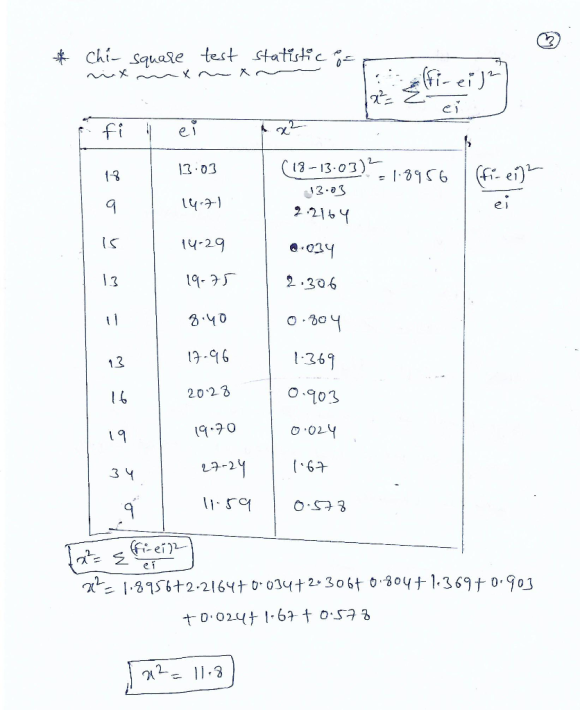 ③
* Chi- square test statistic :-
∴ x² = Σ (fi - ei)² / ei
fi ei x²
18 13.03 (18-13.03)² / 13.03 = 1.8956 (fi- ei)² / ei
9 14.71 2.2164
15 14.29 0.034
13 19.75 2.306
11 8.40 0.804
13 17.96 1.369
16 20.28 0.903
19 19.70 0.024
34 27.24 1.67
9 11.59 0.578
x² = Σ (fi-ei)² / ei
x² = 1.8956+2.2164+0.034+2.306+0.804+1.369+0.903
+0.024+1.67+0.578
x² = 11.8